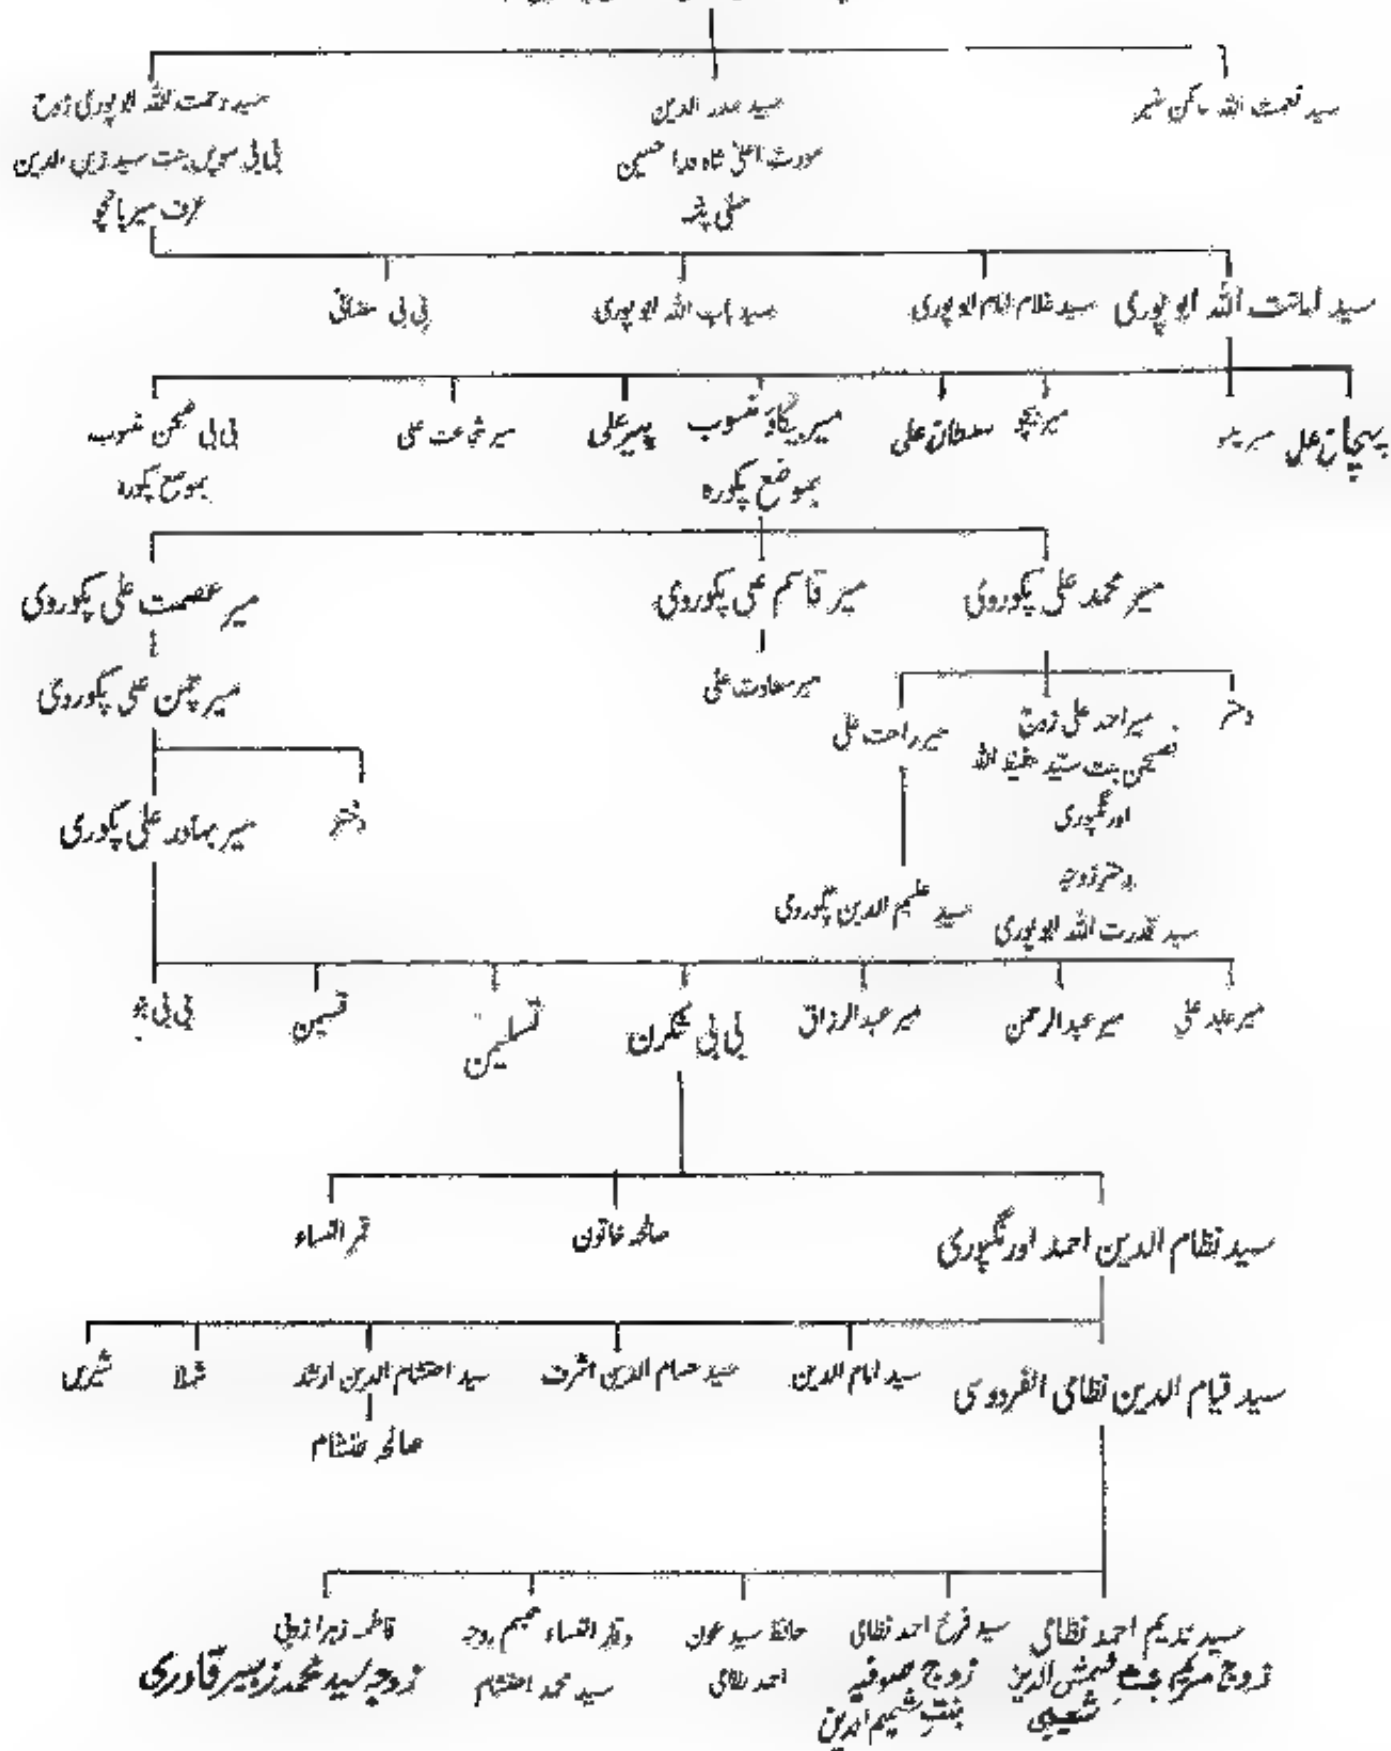 سید نعمت اللہ ساکن منیر
سید صدر الدین
مورث اعلیٰ شاہ فدا حسین
سید رحمت اللہ ابوپوری زوج
بی بی بنت سید زین الدین
عرف میر پانچو
سید امانت اللہ ابوپوری
سید غلام امام ابوپوری
سید باب اللہ ابوپوری
بی بی
پہچان علی
میر
میر پیچو
سلطان علی
میر منگاؤ منسوب
بموضع پکورہ
پیر علی
میر شجاعت علی
بی بی منسوب
بموضع پکورہ
میر محمد علی پکوروی
میر قاسم علی پکوروی
میر عصمت علی پکوروی
دختر
میر احمد علی زوج
بنت سید حفیظ اللہ
اورنگپوری
دختر زوجہ
سید قدرت اللہ ابوپوری
میر راحت علی
سید علیم الدین پکوروی
میر سعادت علی
میر چمن علی پکوروی
دختر
میر بہادر علی پکوروی
میر عابد علی
میر عبدالرحمن
میر عبدالرزاق
بی بی شکرن
تسلیمن
نسیمن
بی بی
سید نظام الدین احمد اورنگپوری
صالحہ خاتون
قمر النساء
سید قیام الدین نظامی الفردوسی
سید امام الدین
سید حسام الدین اشرف
سید احتشام الدین ارشد
شہلا
شیریں
صالحہ احتشام
سید ندیم احمد نظامی
زوج مریم بنت شمس الدین
شعیبی
سید فرخ احمد نظامی
زوج صوفیہ
بنت شمیم الدین
حافظ سید عون
احمد نظامی
وقار النساء زوجہ
سید محمد احتشام
فاطمہ زہرا
زوجہ سید محمد زبیر قادری